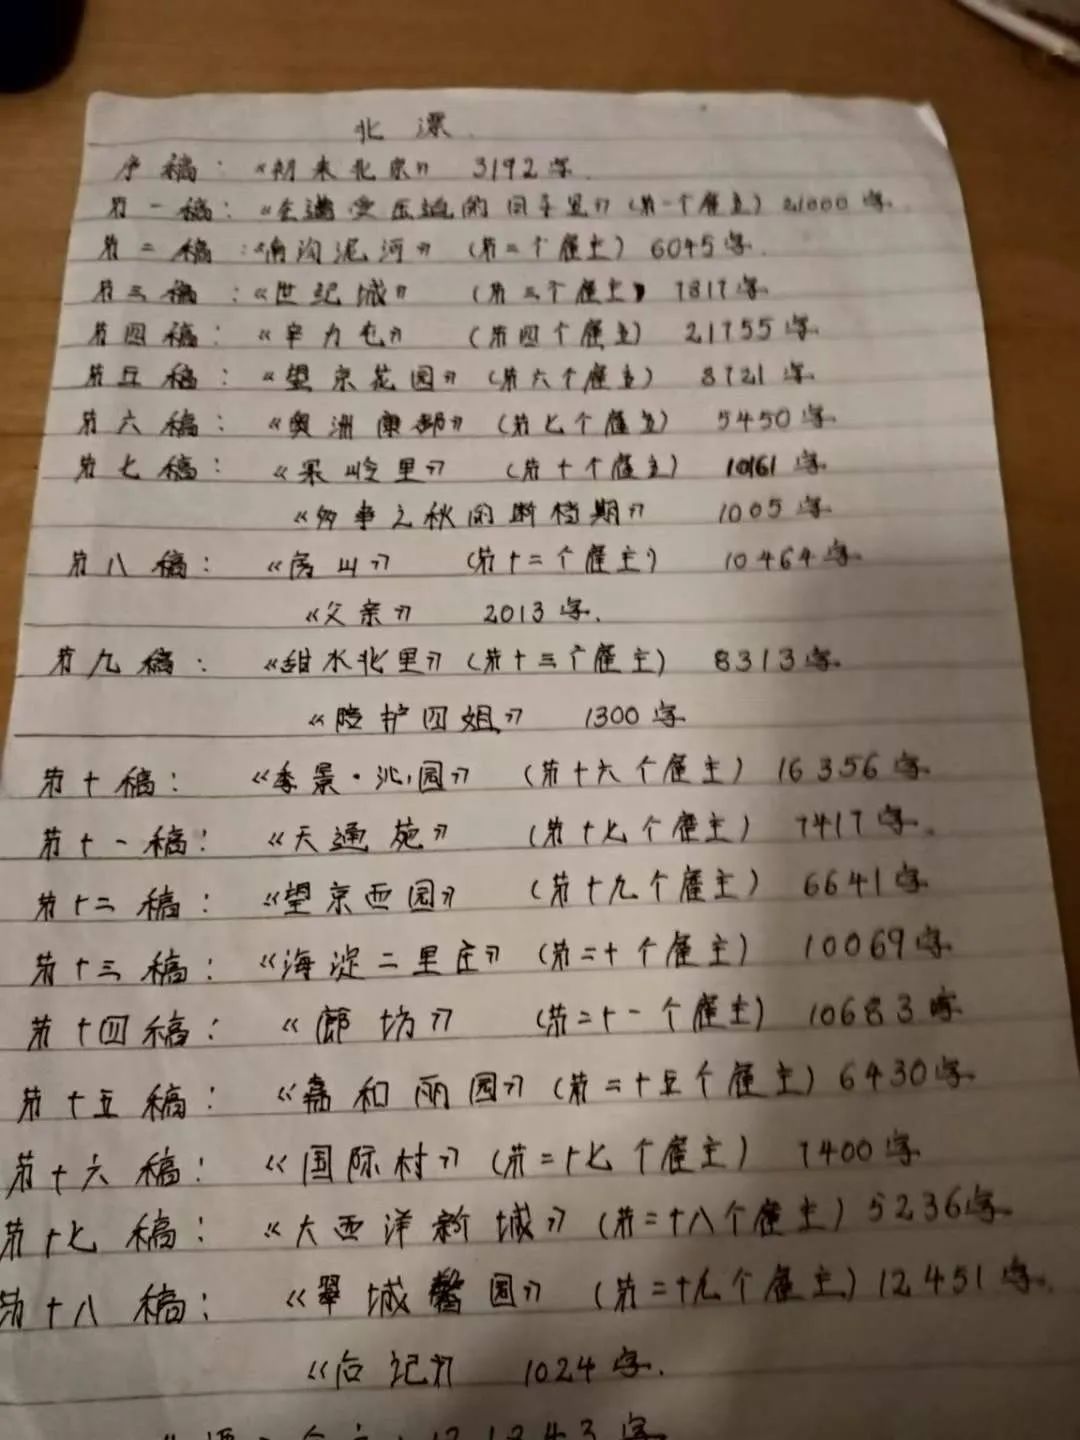 北漂
序稿：《初来北京》 3192字.
第一稿：《仝遭受压迫的同手足》（第一个雇主）21000字.
第二稿：《南沟泥河》（第二个雇主）6045字.
第三稿：《世纪城》（第三个雇主）7817字.
第四稿：《辛力屯》（第四个雇主）21755字.
第五稿：《望京花园》（第六个雇主）8721字.
第六稿：《奥洲康都》（第七个雇主）5450字.
第七稿：《果岭里》（第十个雇主）10161字.
《多事之秋的断档期》 1005字.
第八稿：《房山》（第十二个雇主）10464字.
《父亲》 2013字.
第九稿：《甜水北里》（第十三个雇主）8313字.
《陪护四姐》 1300字
第十稿：《季景·沁园》（第十六个雇主）16356字.
第十一稿：《天通苑》（第十七个雇主）7417字.
第十二稿：《望京西园》（第十九个雇主）6641字.
第十三稿：《海淀二里庄》（第二十个雇主）10069字.
第十四稿：《廊坊》（第二十一个雇主）10683字.
第十五稿：《嘉和丽园》（第二十五个雇主）6430字.
第十六稿：《国际村》（第二十七个雇主）7400字.
第十七稿：《大西洋新城》（第二十八个雇主）5236字.
第十八稿：《翠城馨园》（第二十九个雇主）12451字.
《后记》 1024字.